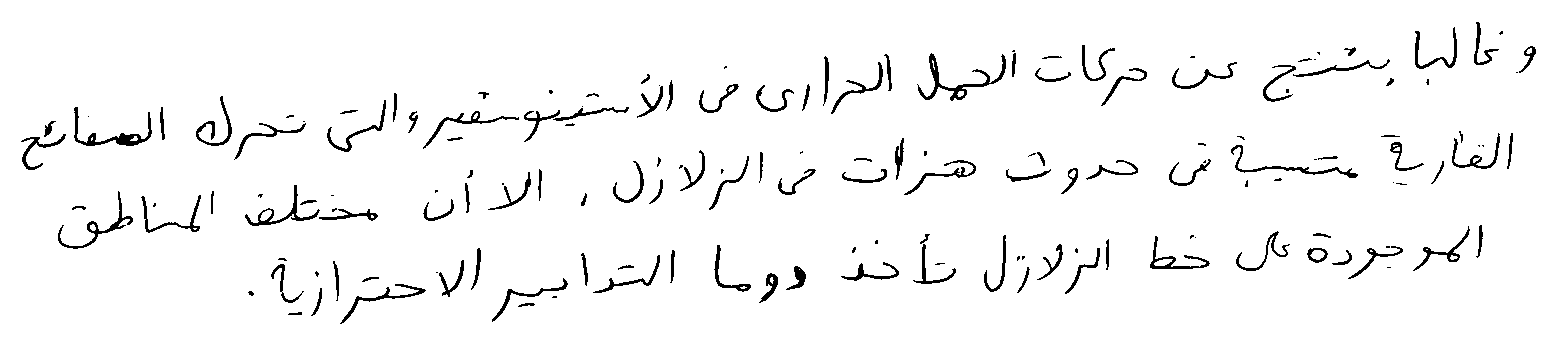 وغالبا ينتج عن حركات الحمل الحرارى فى الأستينوسفير والتى تحرك الصفائح
القارية متسببة فى حدوث هزات فى الزلازل , الا أن مختلف المناطق
الموجودة على خط الزلازل تأخذ دوما التدابير الاحترازية .